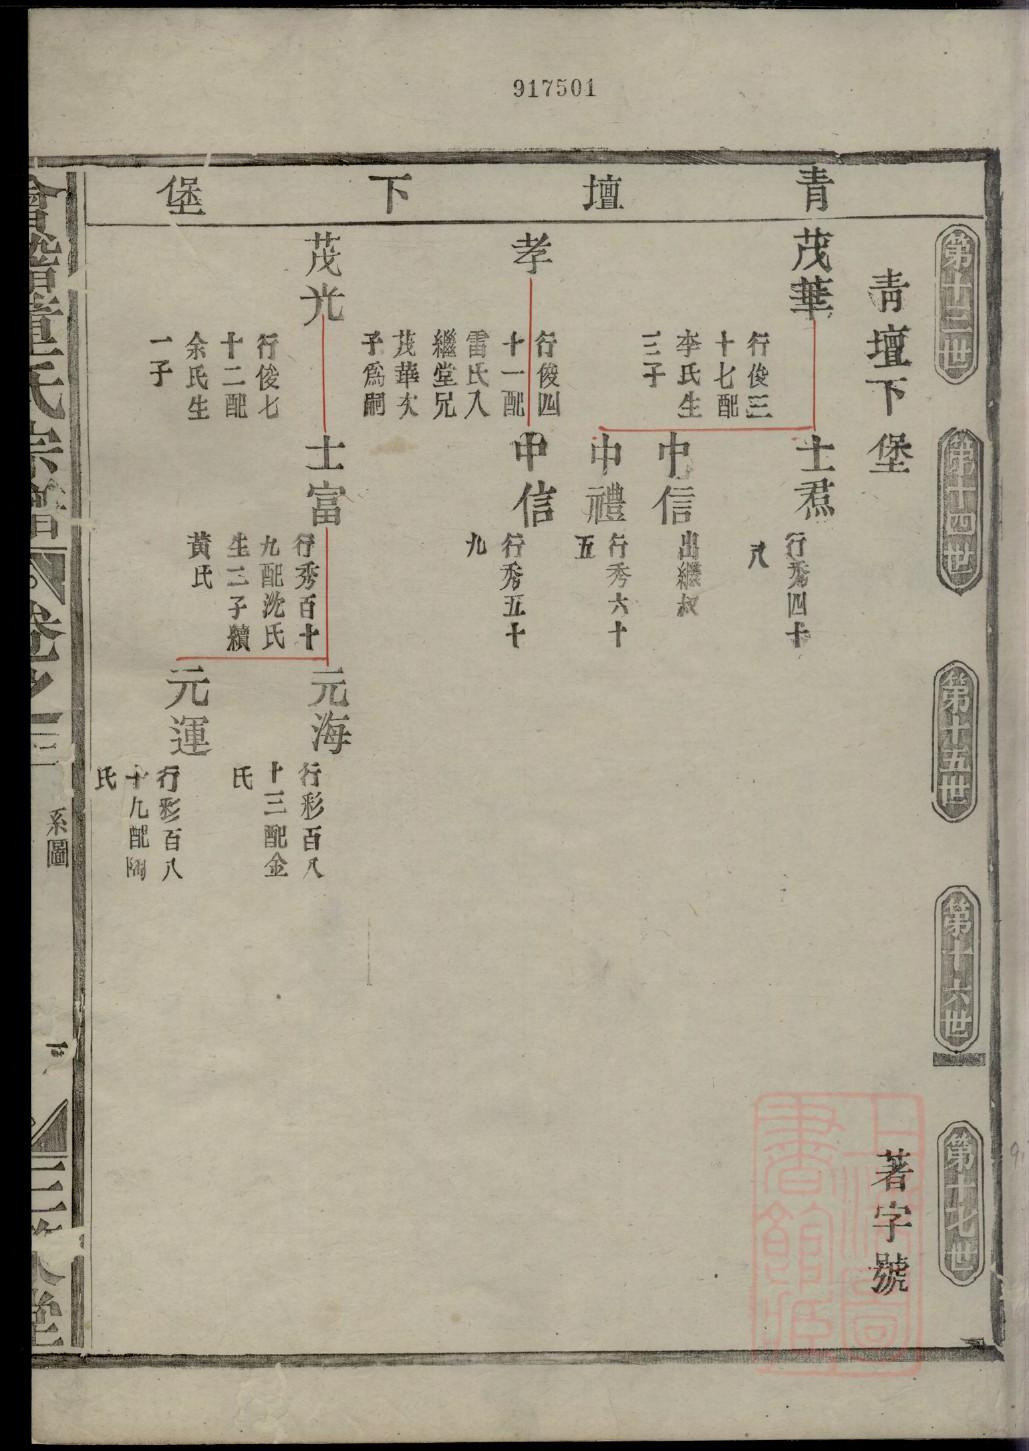 917501
青壇下堡
第十三世
第十四世
第十五世
第十六世
第十七世
青壇下堡
著字號
茂華
行俊三
十七配
李氏生
三子
士焄
行秀四十
八
中信
出繼叔
中禮
行秀六十
五
孝
行俊四
十一配
雷氏入
繼堂兄
茂華次
子爲嗣
中信
行秀五十
九
茂光
行俊七
十二配
余氏生
一子
士富
行秀百十
九配沈氏
生二子續
黃氏
元海
行彩百八
十三配金
氏
元運
行彩百八
十九配陶
氏
氏宗譜
卷之
系圖
堂